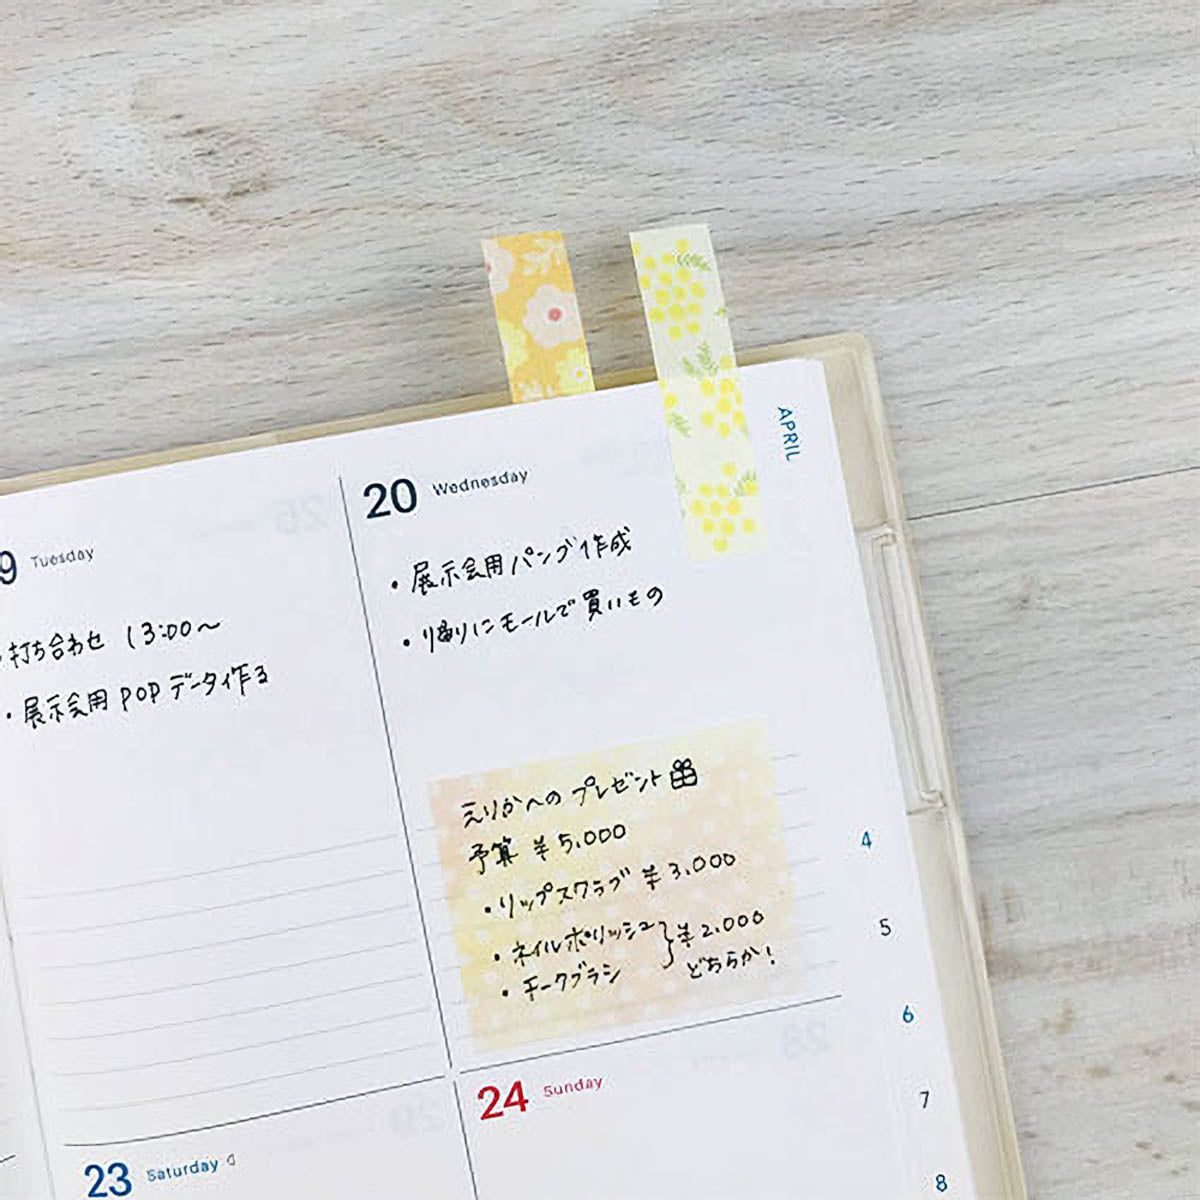 APRIL
9 Tuesday
・打ち合わせ 13:00～
・展示会用POPデータ作る
20 Wednesday
・展示会用パング作成
・帰りにモールで買いもの
えりかへのプレゼント
予算 ¥5,000
・リップスクラブ ¥3,000
・ネイルポリッシュ
・チークブラシ
}¥2,000
どちらか!
23 Saturday
24 Sunday
4
5
6
7
8